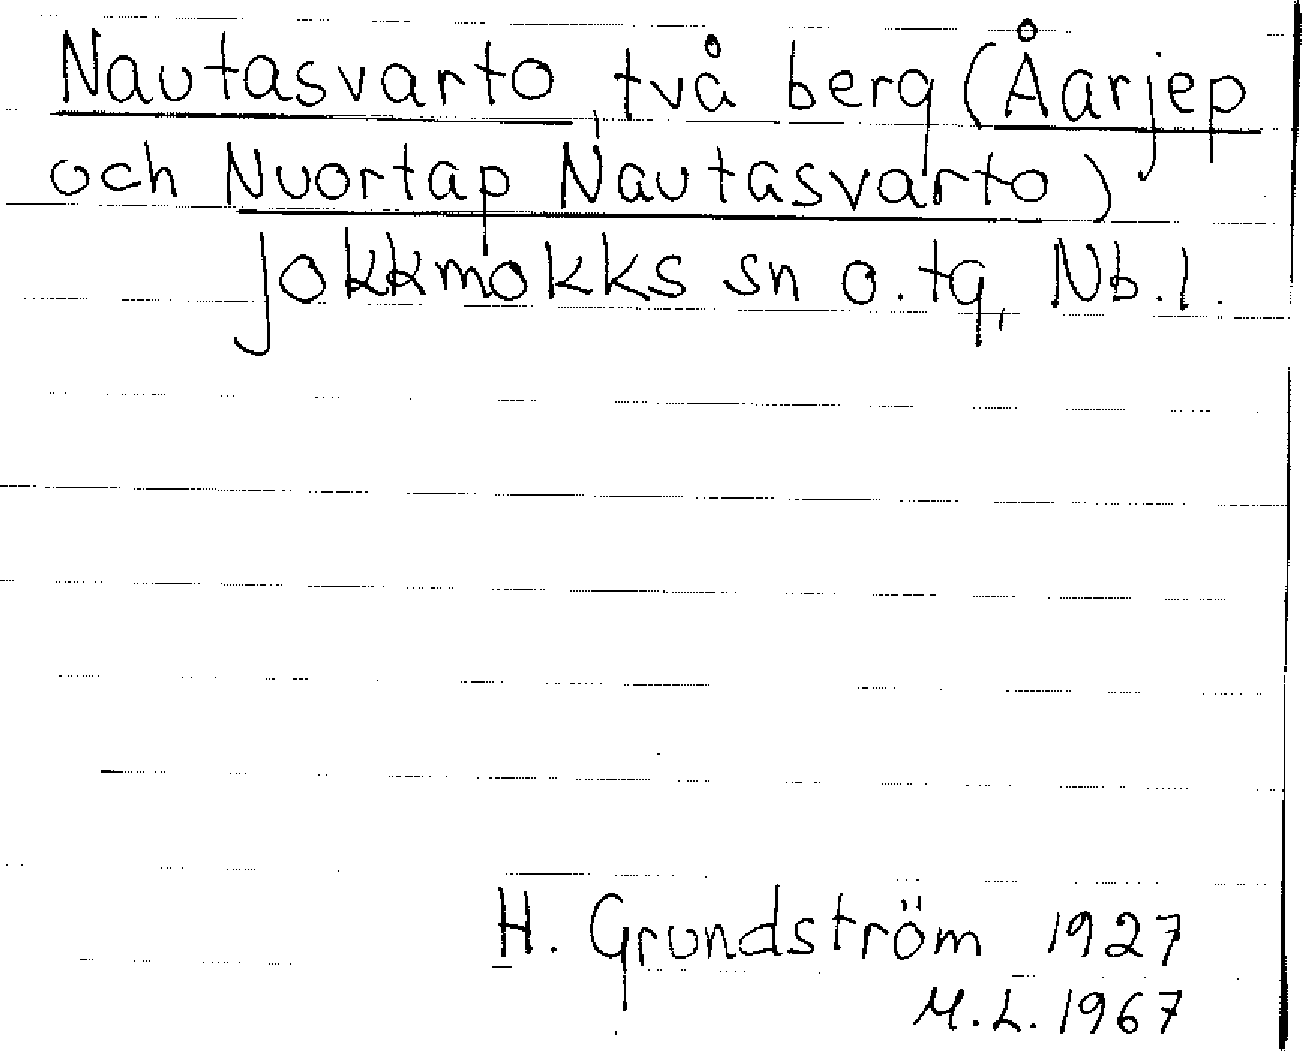 Nautasvarto, två berg (Åarjep
och Nuortap Nautasvarto)
Jokkmokks sn o. tg, Nb. l.
H. Grundström 1927
M. L. 1967